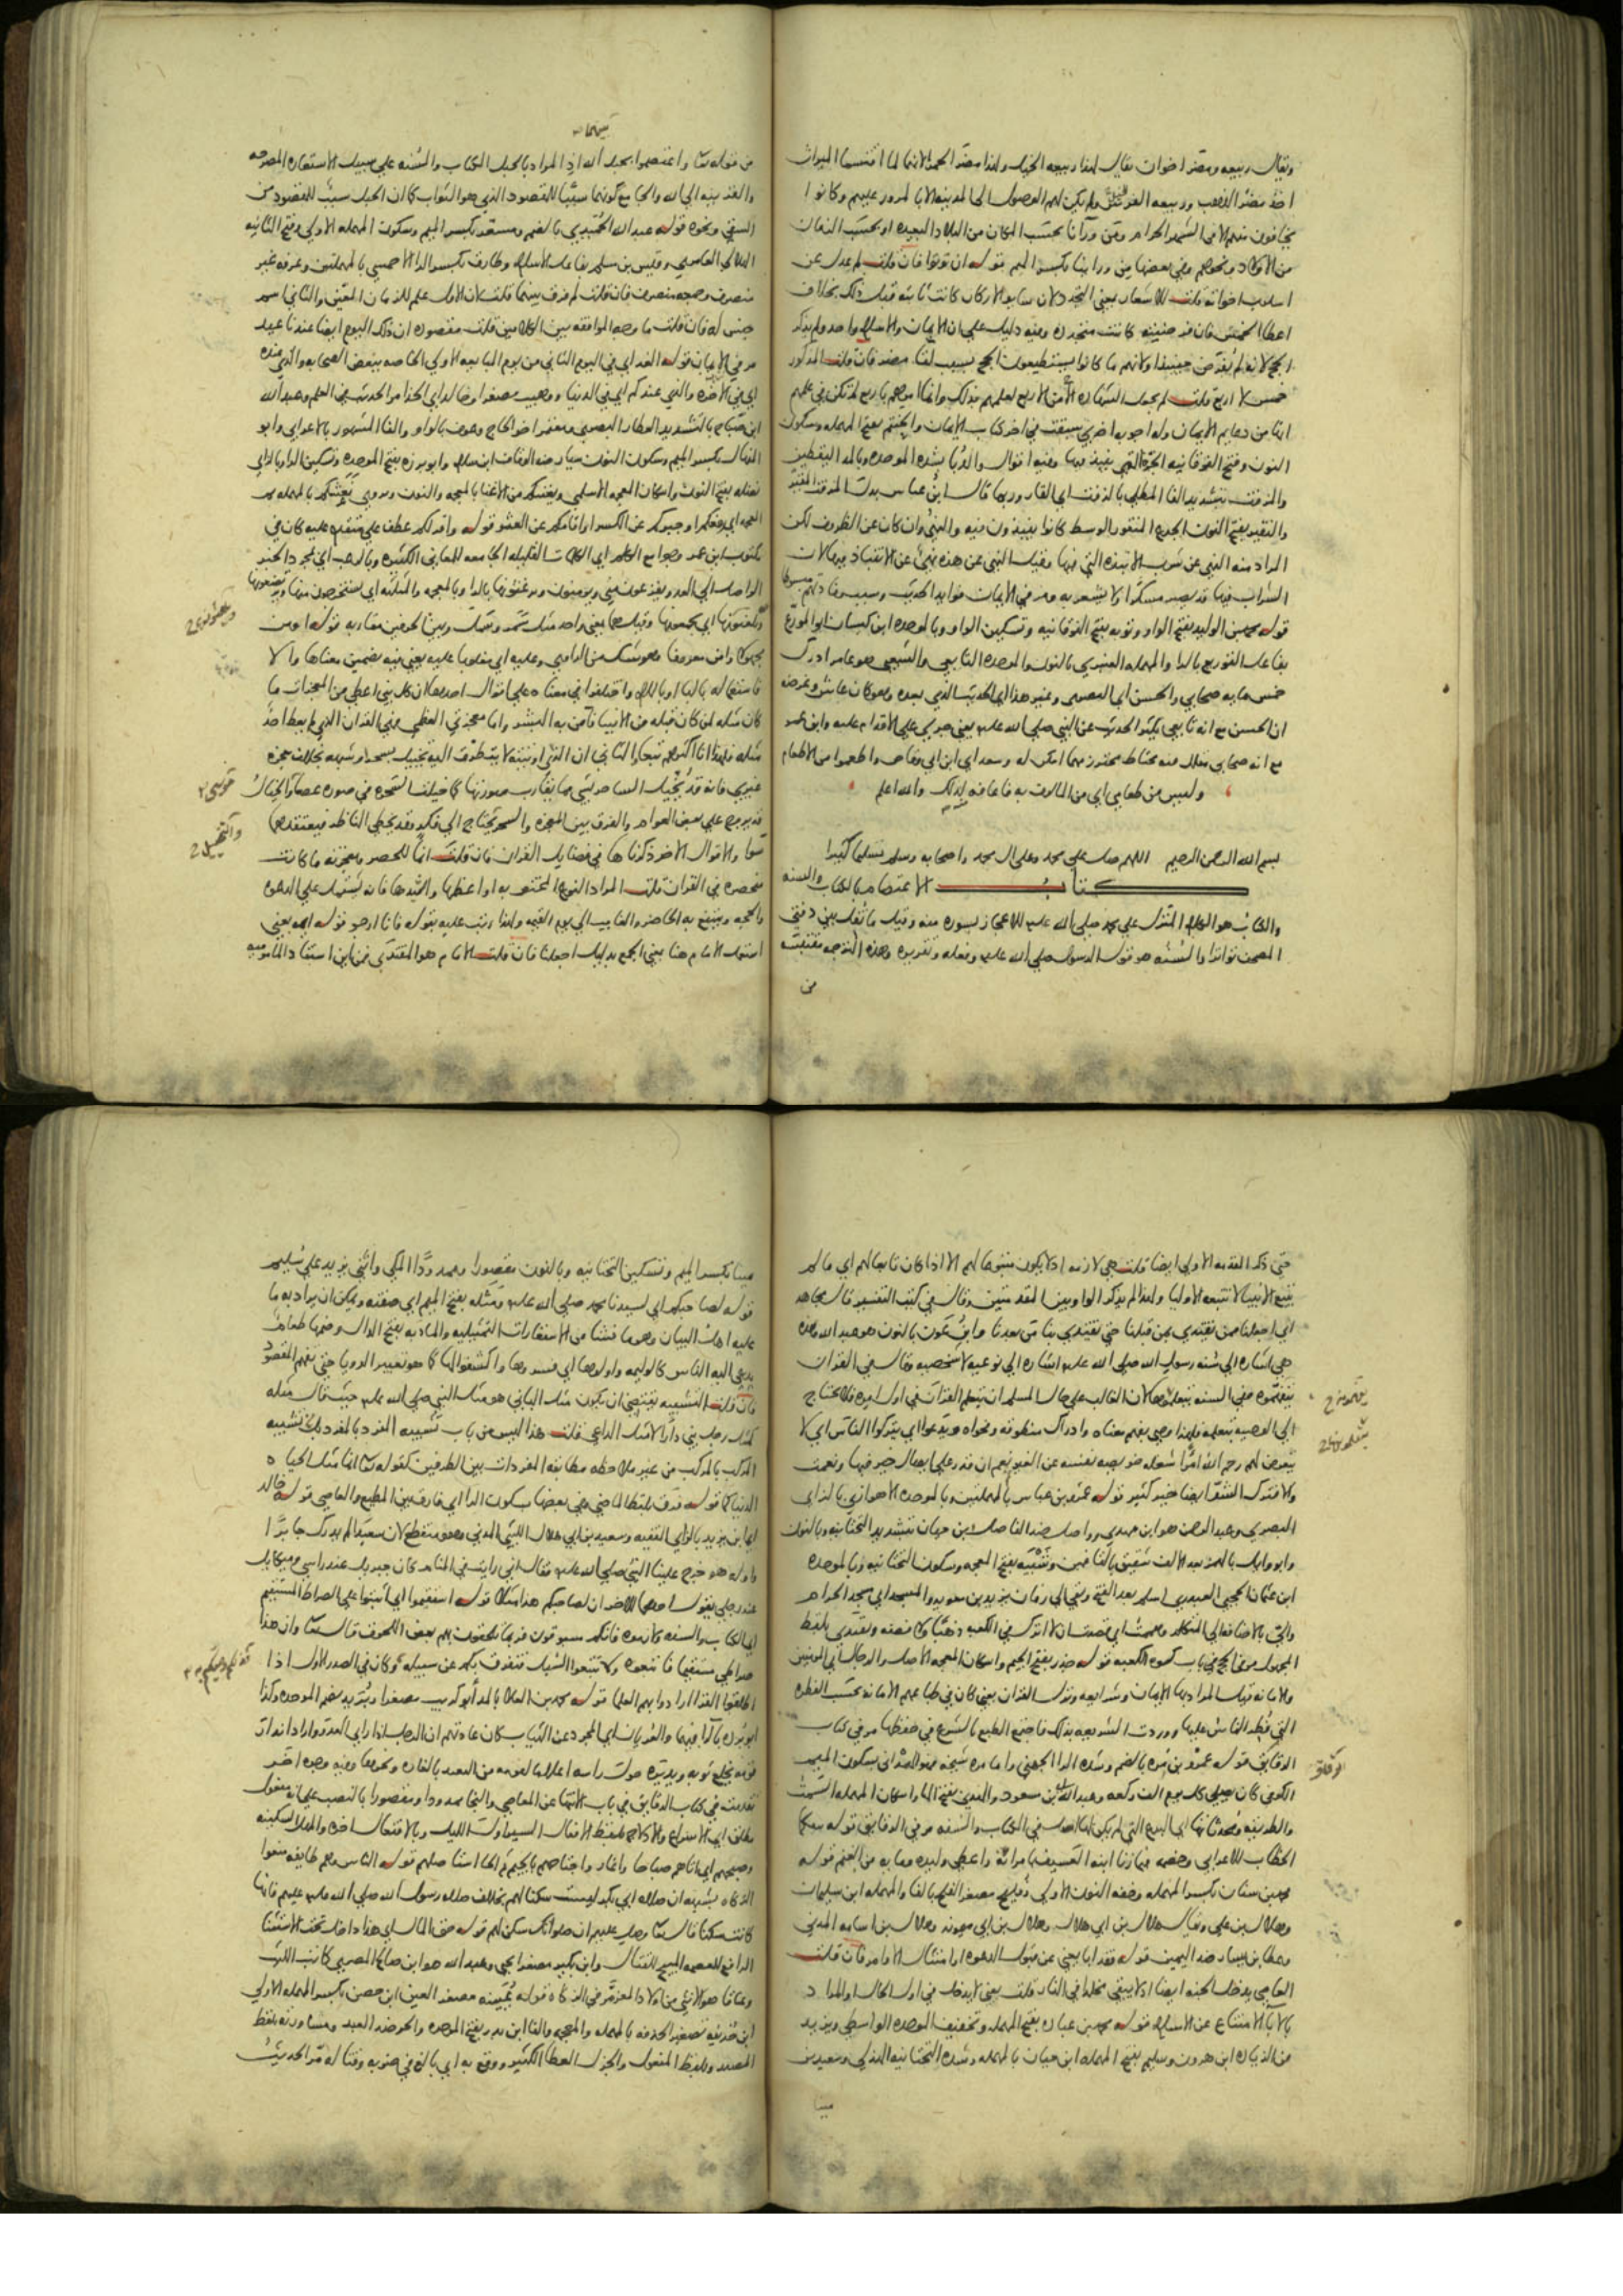 ويقال ربيعه ومضر اخوان يقال لهذا ربيعه الخيل ولهذا مضر الحمرا لانهما لما اقتسما الميراث
اخذ مضر الذهب وربيعه الفرس ولم يكن لهم الوصول الى المدينه الا بالمرور عليهم وكانوا
يخافون منهم الا في الشهر الحرام ومن ورآنا بحسب المكان من البلاد البعيده او بحسب الزمان
من الاولاد ونحوهم وفي بعضها من ورائنا بكسر الميم قوله ان تؤتوا فان قلت لم عدل عن
اسلوب اخواته قلت للاشعار بمعنى التجدد لان سايرالاركان كانت ثابته قبل ذلك بخلاف
اعطا الخمس فان فرضيته كانت متجدده وفيه دليل على ان الايمان والاسلام واحد ولم يذكر
الحج لانه لم يفرض حينيذ او لانهم ما كانوا يستطيعون الحج بسبب لقا مضر فان قلت المذكور
خمس لا اربع قلت لم يجعل الشهاده من الاربع لعلمهم بذلك وانما امرهم باربع لم تكن في علمهم
انها من دعايم الايمان وله اجوبه اخرى سبقت في اخر كتاب الايمان والحنتم بفتح المهمله وسكون
النون وفتح الفوقانيه الجره التي ينبذ فيها وفيه اقوال والدبا بشده الموحده وبالمد اليقطين
والمزفت بتشديد الفا المطلي بالزفت اي القار وربما قال ابن عباس بدل المزفت المقير
والنقير بفتح النون الجذع المنقور الوسط كانوا ينبذون فيه والنهي وان كان عن الظروف لكن
المراد منه النهي عن شرب الانبذه التي فيها وقيل النهي عن هذه نهي عن الانتباذ فيها لان
الشراب فيها قد يصير مسكرا ولا يشعر به ومر في الايمان فوايد الحديث وسبب وفادتهم مبسوطا
قوله محمد بن الوليد بفتح الواو وتوبه بفتح الفوقانيه وتسكين الواو وبالموحده ابن كيسان ابو المورع
بفاعل التوريع بالرا والمهمله العنبري بالنون والموحده التابعي والشعبي هو عامر ادرك
خمس مايه صحابي والحسن اي البصري وغير هذا اي الحديث الذي بعده وهو كان غايش وغرضه
ان الحسن مع انه تابعي يكثر الحديث عن النبي صلى الله عليه يعني جري على الاقدام عليه وابن عمر
مع انه صحابي مقلل فيه محتاط محترز مهما امكن له وسعد اي ابن ابي وقاص واطعموا من الاطعام
وليس من طعامي اي من المالوف به فاعافه لذلك والله اعلم
بسم الله الرحمن الرحيم اللهم صل على محمد وعلى ال محمد واصحابه وسلم تسليما كثيرا
كتاب الاعتصام بالكتاب والسنه
والكتاب هو الكلام المنزل على محمد صلى الله عليه للاعجاز بسوره منه وقيل ما نقل بين دفتي
المصحف تواترا والسنه هو قول الرسول صلى الله عليه وفعله وتقريره وهذه الترجمه مقتبسه
من
من قوله تعا واعتصموا بحبل الله اذ المراد بالحبل الكتاب والسنه على سبيل الاستعاره المصرحه
والقرينه الى الله والجامع كونهما سببا للمقصود الذي هو الثواب كما ان الحبل سبب للمقصود من
السقي ونحوه قوله عبد الله الحميدي بالضم ومسعر بكسر الميم وسكون المهمله الاولى وفتح الثانيه
الهلالي العامري وقيس بن سلم بفاعل الاسلام وطارق بكسر الرا الاحمسي بالمهملتين وعرفه غير
منصرف وجمعه منصرف فان قلت لم فرق بينهما قلت لان الاول علم للزمان المعين والثاني اسم
جنس له فان قلت ما وجه الموافقه بين الكلامين قلت مقصوده ان ذلك اليوم ايضا عندنا عيد
مر في الايمان قوله الغد اي في اليوم الثاني من يوم المبايعه الاولى الخاصه ببعض الصحابه والذي عنده
اي في الآخره والذي عندكم اي في الدنيا ووهيب مصغرا وخالد اي الحذا مر الحديث في العلم وعبد الله
ابن صباح بالتشديد العطار البصري ومعتمر اخو الحاج وعوف بالواو والفا المشهور بالاعرابي وابو
المنهال بكسر الميم وسكون النون سيار ضد الوقاف ابن سلامه وابو برزه بفتح الموحده وتسكين الرا وبالزاي
نضله بفتح النون واسكان المعجمه الاسلمي ويغنيكم من الاغنا بالمعجمه والنون وروي نعشكم بالمهمله ثم
المعجمه اي رفعكم او جبركم عن الكسر او اقامكم عن العثر قوله واقر لكم عطف على مقدم عليه كان في
مكتوب ابن عمر وجوامع الكلم اي الكلمات القليله الجامعه للمعاني الكثيره وبالرعب اي مجرد الخبر
الواصل الى العدو يفزعون مني ويومنون وترغثونها بالرا وبالمعجمه والمثلثه اي يستخرجون منها ويرضعونها
وتلغثونها اي يجمعونها وقيل هما بمعنى واحد مثل سمر وسمل وبين الحرفين مقاربه قوله اومن
مجهولا وامن معروفا وهو شك من الراوي وعليه اي مغلوبا عليه يعني فيه يضمين معناها والا
فاستعماله بالبا او باللام واختلفوا في معناه على اقوال احدها ان كل نبي اعطي من المعجزات ما
كان مثله لمن كان قبله من الانبيا فآمن به البشر واما معجزتي العظمى فهي القرآن الذي لم يعط احد
مثله فلهذا انا اكثرهم تبعا والثاني ان الذي اوتيته لا يتطرق اليه تخييل بسحر او شبهه بخلاف معجزه
غيري فانه قد يخيل الساحر بشي مما يقارب صورتها كما خيلت السحره في صوره عصا والخيال
قد يروج على بعض العوام والفرق بين المعجزه والسحر يحتاج الى فكر وقد يخطي الناظر فيعتقدهما
سوا والاقوال الاخر ذكرناها في فضايل القران فان قلت انما للحصر ومعجزته ما كانت
منحصره في القران قلت المراد النوع المختص به او اعظمها وافيدها فانه يشتمل على الدعوه
والحجه وينتفع به الحاضر والغايب الى يوم القيمه ولهذا رتب عليه بقوله فانا ارجو قوله ايمه يعني
استعمل الامام هنا بمعنى الجمع بدليل اجعلنا فان قلت الامام هو المقتدى فمن اين استفاد المامومية
حتى ذكر المقدمه الاولى ايضا قلت هي لازمه اذ لا يكون متبوعا لهم الا اذا كان تابعا لهم اي ما لم
يتبع الانبيا لا تتبعه الاوليا ولهذا لم يذكر الواو بين المقدمتين وقال في كتب التفسير قال مجاهد
اي اجعلنا ممن نقتدي بمن قبلنا حتى يقتدي بنا من بعدنا وابن عون بالنون هو عبد الله وهذه
هي اشاره الى سنه رسول الله صلى الله عليه اشاره الى نوعيه لا شخصيه وقال في القران
يتفهموه وفي السنه يتعلموها لان الغالب على حال المسلم ان يتعلم القران في اول امره فلا يحتاج
الى الوصيه بتعلمه فلهذا وصى بفهم معناه وادراك منطوقه وفحواه ويدعوا اي يتركوا الناس اي لا
يتعرض لهم رحم الله امرا شغله خويصه نفسه عن الغير نعم ان قدر على ايصال خير فيها ونعمت
والا فترك الشر ايضا خير كثير قوله عمرو بن عباس بالمهملتين وبالموحده الاهوازي بالزاي
البصري وعبد الرحمن هو ابن مهدي وواصل ضد الفاصل ابن حيان بتشديد التحتانيه وبالنون
وابو وايل بالهمز بعد الالف شقيق بالقافين وشيبه بفتح المعجمه وسكون التحتانيه وبالموحده
ابن عثمان الحجبي العبدري اسلم بعد الفتح وبقي الى زمان يزيد بن معويه والمسجد اي مسجد الحرام
والتي بالاضافه الى المتكلم وهممت اي قصدت ان لا اترك في الكعبه ذهبا ولا فضه ويقتدى بلفظ
المجهول مر في الحج في باب كسوه الكعبه قوله جذر بفتح الجيم واسكان المعجمه الاصل والرجال اي المومنين
والامانه قيل المراد بها الايمان وشرايعه ونزل القران يعني كان في طباعهم الامانه بحسب الفطره
التي فطر الناس عليها ووردت الشريعه بذلك فاجتمع الطبع بالشرع في حفظها مر في كتاب
الرقايق قوله عمرو بن مره بالضم وشده الرا الجملي واما مره شيخه فهو الهمداني بسكون الميم
الكوفي كان يصلي كل يوم الف ركعه وعبد الله بن مسعود والهدي بفتح الها واسكان المهمله السمت
والطريقه ومحدثاتها اي البدع التي لم يكن لها اصل في الكتاب والسنه ومر في الرقايق قوله بينكما
الخطاب للاعرابي وخصمه فيما زنا ابنه العسيف بامراته واعطى وليده ومايه من الغنم قوله
محمد بن سنان بكسر المهمله وخفه النون الاولى وفليح مصغر الفلح بالفا والمهمله ابن سليمان
وهلال بن علي ويقال هلال بن ابي هلال وهلال بن ابي ميمونه وهلال بن اسامه المدني
وعطا بن يسار ضد اليمين قوله فقد ابا يعني عن قبول الدعوه او امتثال الاوامر فان قلت
العاصي يدخل الجنه ايضا اذ لا يبقى مخلدا في النار قلت يعني لا يدخل في اول الحال او المراد
بالابا الامتناع عن الاسلام قوله محمد بن عباده بفتح المهمله وتخفيف الموحده الواسطي ويزيد
من الزياده ابن هرون وسليم بفتح المهمله ابن حيان بالمهمله وشده التحتانيه الهذلي وسعيد بن
مينا
مينا بكسر الميم وتسكين التحتانيه وبالنون مقصورا وممدودا المكي واثنى يزيد على سليم
قوله لصاحبكم اي لسيدنا محمد صلى الله عليه ومثله بفتح الميم اي صفته ويمكن ان يراد به ما
عليه اهل البيان وهو ما فشا من الاستعارات التمثيليه والمادبه بفتح الدال وضمها طعام
يدعى اليه الناس كالوليمه واولوها اي فسروها واكشفوا لها كما هو تعبير الرويا حتى يفهم المقصود
فان قلت التشبيه يقتضي ان يكون مثل الباني هو مثل النبي صلى الله عليه حيث قال مثله
كمثل رجل بنى دارا لا مثل الداعي قلت هذا ليس من باب تشبيه المفرد بالمفرد بل تشبيه
المركب بالمركب من غير ملاحظه مطابقه المفردات بين الطرفين كقوله تعا انما مثل الحياه
الدنيا كما قوله فرق بلفظ الماضي وفي بعضها بسكون الرا اي فارق بين المطيع والعاصي قوله خالد
اي ابن يزيد بالزاي الفقيه وسعيد بن ابي هلال الليثي المدني وهو منقطع لان سعيد لم يدرك جابرا
واوله هو خرج علينا النبي صلى الله عليه فقال اني رايت في المنام كان جبريل عند راسي وميكايل
عند رجلي يقول احدهما للاخر ان لصاحبكم هذا مثلا قوله استقيموا اي اثبتوا على الصراط المستقيم
اي الكتاب والسنه فانكم مسبوقون فربما تلحقون بهم بعض اللحوق قال تعا وان هذا
صراطي مستقيما فاتبعوه ولا تتبعوا السبل فتفرق بكم عن سبيله وكان في الصدر الاول اذا
اطلقوا القرا ارادوا بهم العلما قوله محمد بن العلا بالمد ابو كريب مصغرا وبريد بضم الموحده وكذا
ابو برده بالرا فيهما والعريان اي المجرد عن الثياب كان عادتهم ان الرجل اذا راى العدو واراد انذار
قومه يخلع ثوبه ويديره حول راسه اعلاما لقومه من البعد بالغاره ونحوها وفيه وجوه اخر
تقدمت في كتاب الرقايق في باب الانتها عن المعاصي والنجا ممدودا ومقصورا بالنصب على انه مفعول
مطلق اي الاسراع والادلاج بلفظ الافعال السير اول الليل وبالافتعال اخره والمهل السكينه
وصبحهم اي اتاهم صباحا واغار واجتاحهم بالجيم ثم الحا استاصلهم قوله الناس وهم طايفه منعوا
الزكاه بشبهه ان صلاه ابي بكر ليست سكنا لهم بخلاف صلاه رسول الله صلى الله عليه عليهم فانها
كانت سكنا قال تعا وصل عليهم ان صلواتك سكن لهم قوله حق المال اي هذا داخل تحت الاستثنا
الرافع للعصمه المبيح للقتال وابن بكير مصغرا يحيى وعبد الله هو ابن صالح المصري كاتب الليث
وعناقا هو الانثى من اولاد المعز مر في الزكاه قوله عيينه مصغر العين ابن حصن بكسر المهمله الاولى
ابن حذيفه تصغير الحذفه بالمهمله والمعجمه والفا ابن بدر بفتح الموحده والحر ضد العبد ومشاورته بلفظ
المصدر وبلفظ المفعول والجزل العطا الكثير ووقع به اي بالغ في ضربه وقتاله مر الحديث